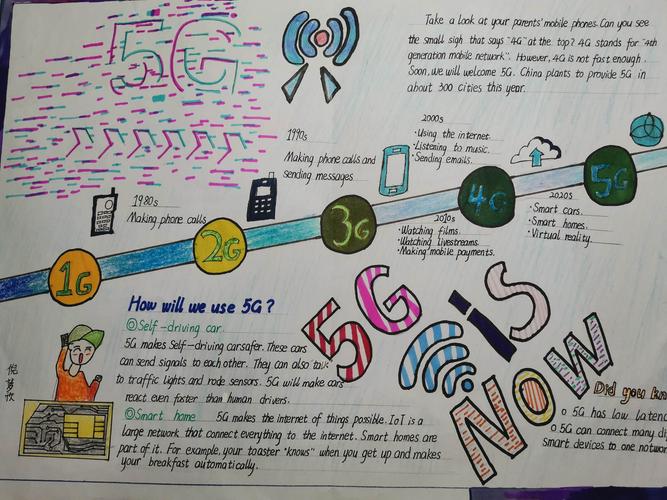 5G
Take a look at your parents' mobile phones. Can you see
the small sigh that says "4G" at the top? 4G stands for "4th
generation mobile network". However, 4G is not fast enough.
Soon, we will welcome 5G. China plants to provide 5G in
about 300 cities this year.
1980s
Making phone calls
1990s
Making phone calls and
sending messages
2000s
·Using the internet.
·Listening to music.
·Sending emails.
2010s
·Watching films.
·Watching livestreams.
·Making mobile payments.
2020s
·Smart cars.
·Smart homes.
·Virtual reality.
1G
2G
3G
4G
5G
How will we use 5G?
Self-driving car
5G makes Self-driving carsafer. These cars
can send signals to each other. They can also talk
to traffic lights and rode sensors. 5G will make cars
react even faster than human drivers.
Smart home 5G makes the internet of things possible. IoT is a
large network that connect everything to the internet. Smart homes are
part of it. For example, your toaster "knows" when you get up and makes
your breakfast automatically.
5G is
NOW
Did you kn
5G has low laten
5G can connect many di
smart devices to one networ